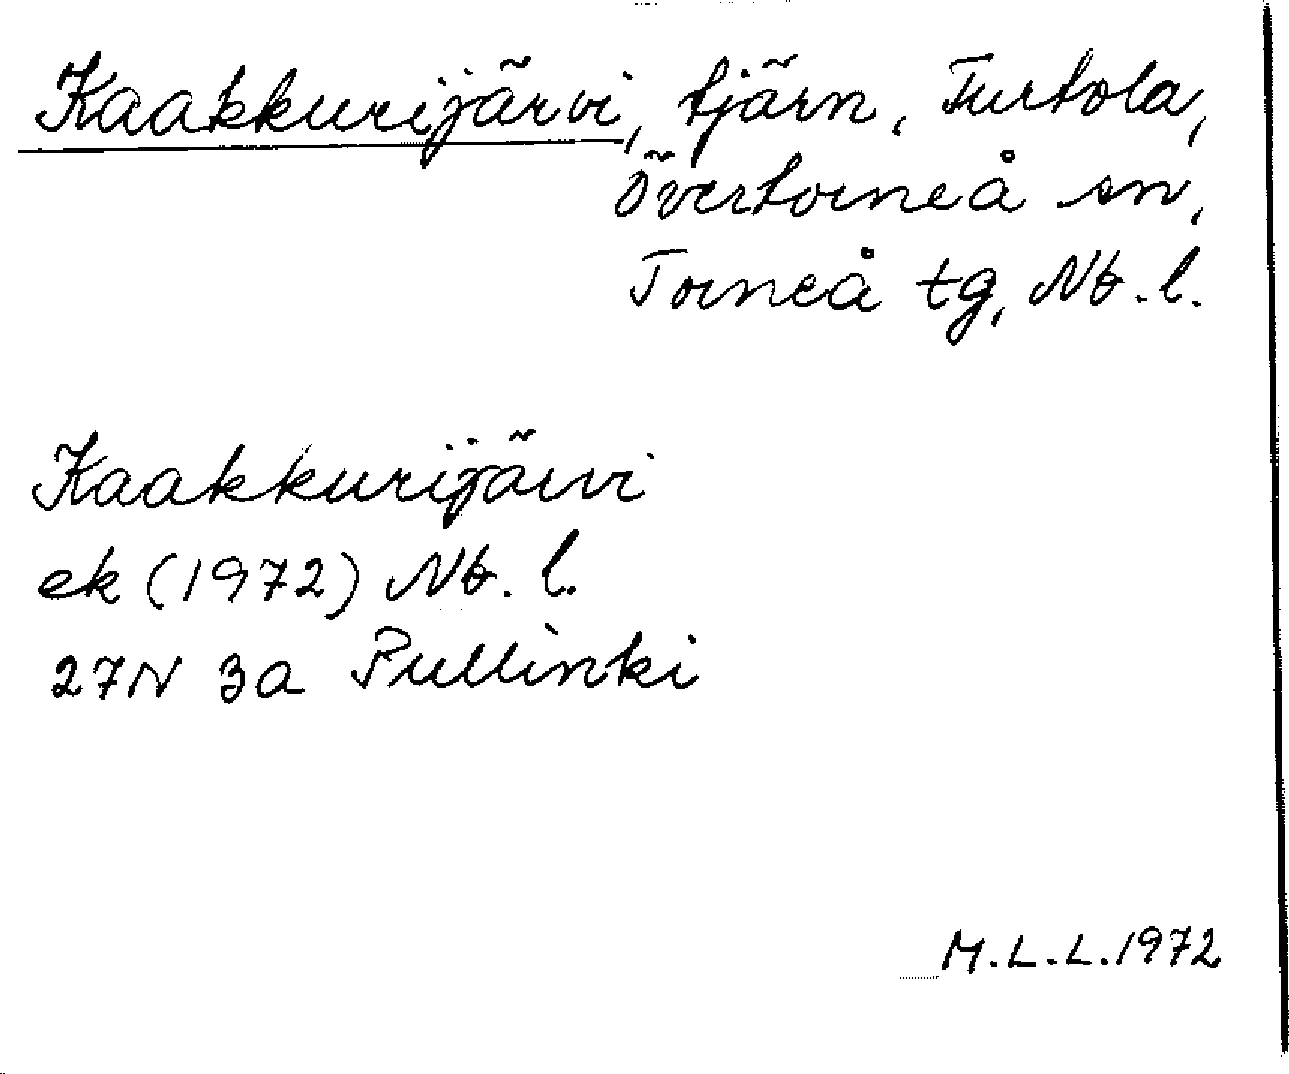 Kaakkurijärvi, tjärn, Turtola,
Övertorneå sn,
Torneå tg, Nb. l.
Kaakkurijärvi
ek (1972) Nb. l.
27N 3a Pullinki
M.L.L. 1972